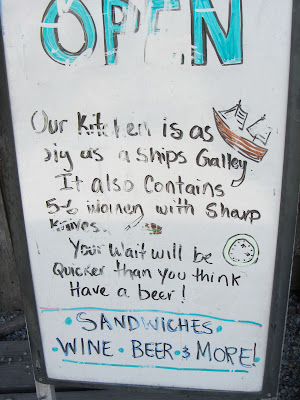 OPEN
Our Kitchen is as
big as a Ships Galley.
It also Contains
5-6 women with Sharp
Knives.
Your Wait will be
Quicker than you think
Have a beer!
SANDWICHES
WINE • BEER • & MORE!